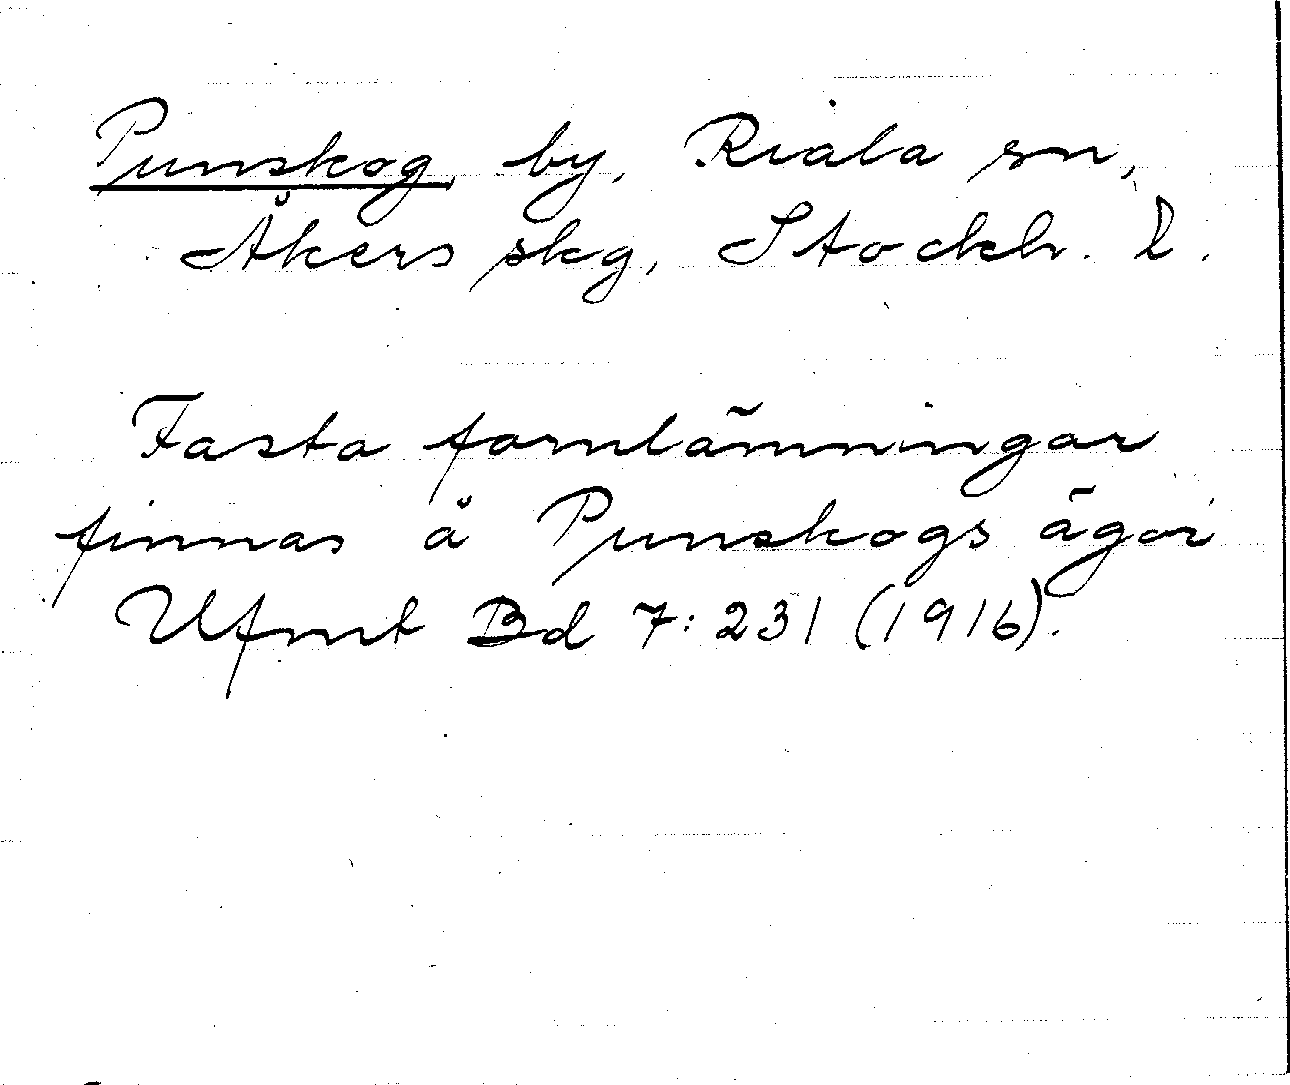 Punskog, by, Riala sn,
Åkers skg, Stockh. L.
Fasta fornlämningar
finnas å Punskogs ägor
Ufmt Bd 7:231 (1916).